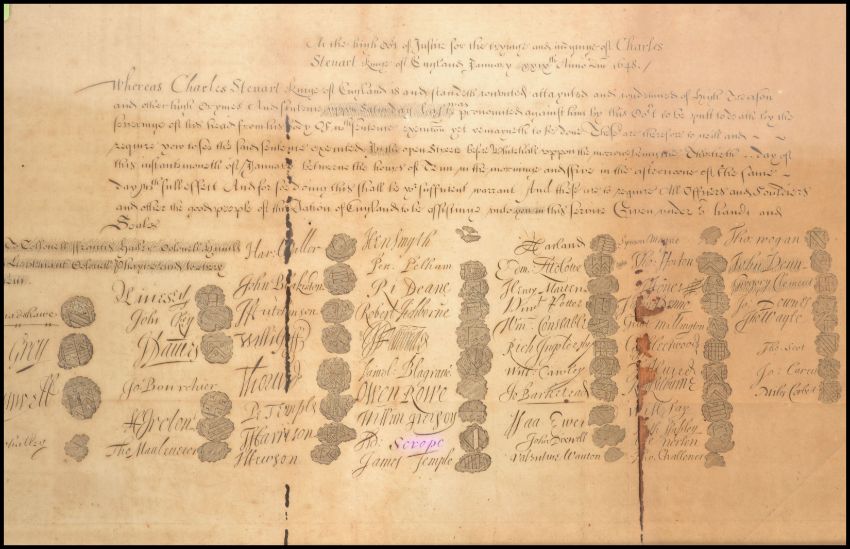 At the high Cort of Justice for the tryinge and iudginge of Charles
Steuart Kinge of England January xxixth Anno Dni 1648./
Whereas Charles Steuart Kinge of England is and standeth convicted attaynted and condemned of High Treason
and other high Crymes And sentence uppon Saturday last was pronounced against him by this Cort to be putt to death by the
severinge of his head from his body Of wch sentence execution yet remayneth to be done These are therefore to will and
require you to see the said sentence executed In the open Streete before Whitehall uppon the morrowe being the Thirtieth day of
this instant moneth of January betweene the houres of Tenn in the morninge and Five in the afternoone of the same
day wth full effect And for soe doing this shall be yor sufficient warrant And these are to require All Officers and Souldiers
and other the good people of this Nation of England to be assistinge unto you in this service Given under or hands and
Seales
Collonell Francis Hacker Colonell Huncks
Lieutenant Colonell Phayre and to every
Grey
H Edwardes
John
Danvers
Jo Bourchier
H Ireton
Tho Mauleverer
Har: Waller
John Blakiston
J Hutchinson
Willi Goff
Tho Pride
P Temple
T Harrison
J Hewson
Hen Smyth
Per. Pelham
Ri Deane
Robert Tichborne
Owen Rowe
Ad: Scrope
James Temple
A Garland
Edm: Ludlowe
Henry Marten
Vint Potter
Wm Constable
Rich Ingoldesby
Will Cawley
Jo Barkstead
Isaa Ewer
John Dixwell
Valentine Wauton
Symon Mayne
Tho Horton
J Jones
Gilbt Millington
G Fleetwood
J Alured
Will Say
Tho Challoner
Tho Wogan
John Venn
Gregory Clement
Jo Downes
Tho Wayte
Tho Scot
Jo: Carew
Miles Corbet